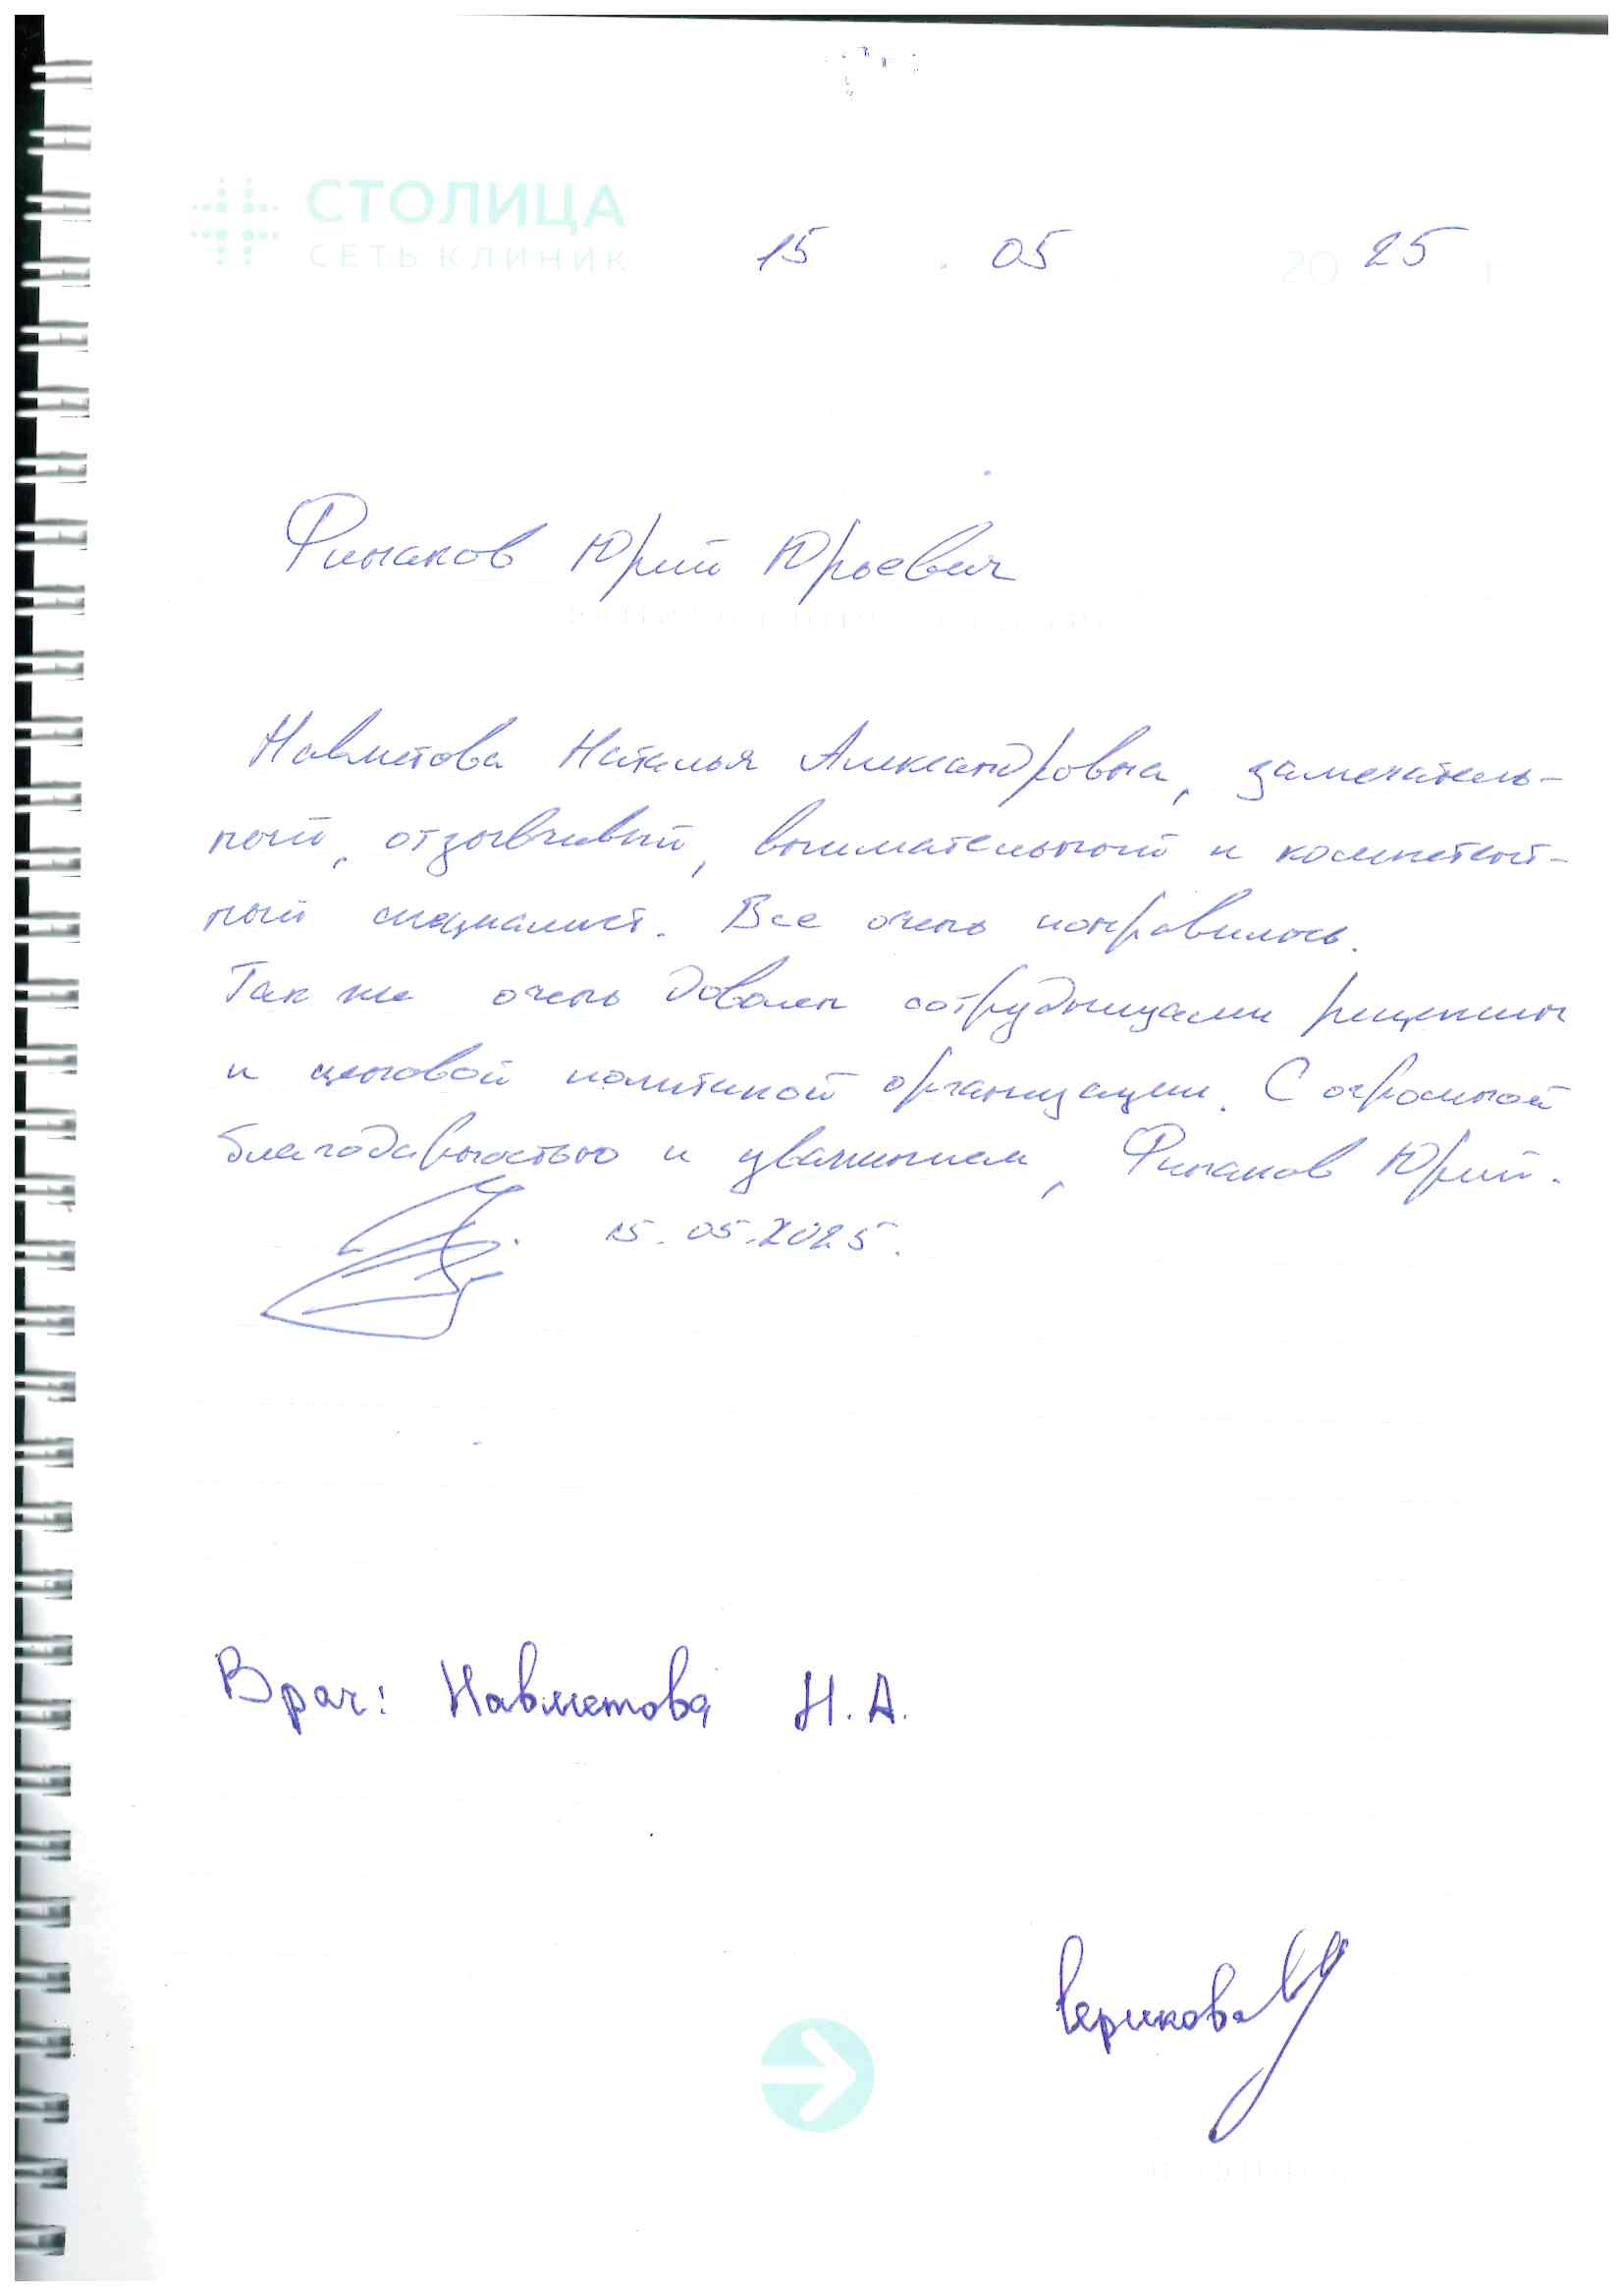 СТОЛИЦА
СЕТЬ КЛИНИК
15 05 20 25
Финаков Юрий Юрьевич
Навметова Наталья Александровна, замечатель-
ный, отзывчивый, внимательный и компетент-
ный специалист. Все очень понравилось.
Так же очень доволен сотрудницами рецепшн
и ценовой политикой организации. С огромной
благодарностью и уважением, Финаков Юрий.
15.05.2025.
Врач: Навметова Н.А.